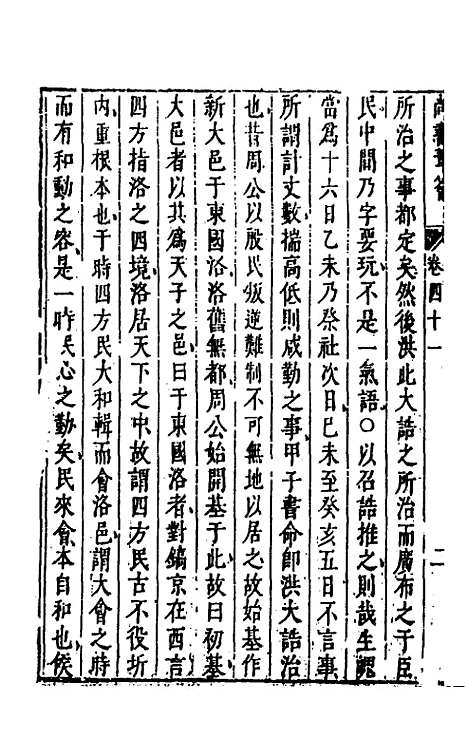 尚書葦籥 卷四十一 二
所治之事都定矣然後洪此大誥之所治而廣布之于臣
民中間乃字要玩不是一氣語○以召誥推之則哉生魄
當爲十六日乙未乃祭社次日己未至癸亥五日不言事
所謂計丈數揣高低則咸勤之事甲子書命即洪大誥治
也昔周公以殷民叛逆難制不可無地以居之故始基作
新大邑于東國洛洛舊無都周公始開基于此故曰初基
大邑者以其爲天子之邑曰于東國洛者對鎬京在西言
四方指洛之四境洛居天下之中故謂四方民古不役圻
內重根本也于時四方民大和輯而會洛邑謂大會之時
而有和動之容是一時民心之勤矣民來會本自和也侯